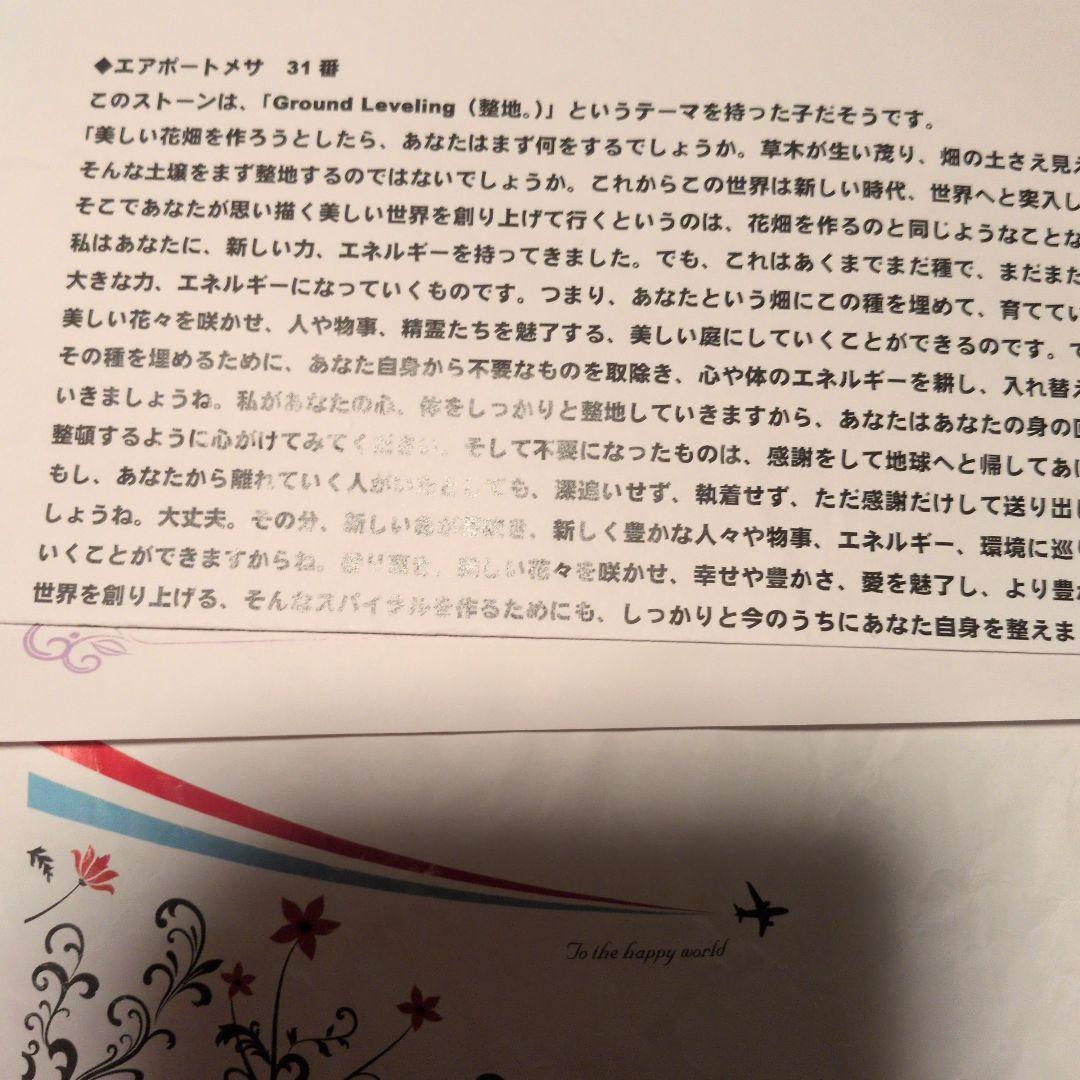 ◆エアポートメサ　31番
このストーンは、「Ground Leveling（整地。）」というテーマを持った子だそうです。
「美しい花畑を作ろうとしたら、あなたはまず何をするでしょうか。草木が生い茂り、畑の土さえ見え
そんな土壌をまず整地するのではないでしょうか。これからこの世界は新しい時代、世界へと突入し
そこであなたが思い描く美しい世界を創り上げて行くというのは、花畑を作るのと同じようなことな
私はあなたに、新しい力、エネルギーを持ってきました。でも、これはあくまでまだ種で、まだまだ
大きな力、エネルギーになっていくものです。つまり、あなたという畑にこの種を埋めて、育ててい
美しい花々を咲かせ、人や物事、精霊たちを魅了する、美しい庭にしていくことができるのです。で
その種を埋めるために、あなた自身から不要なものを取除き、心や体のエネルギーを耕し、入れ替え
いきましょうね。私があなたの心、体をしっかりと整地していきますから、あなたはあなたの身の回
整頓するように心がけてみてください。そして不要になったものは、感謝をして地球へと帰してあげ
もし、あなたから離れていく人がいたとしても、深追いせず、執着せず、ただ感謝だけして送り出し
しょうね。大丈夫。その分、新しい 、新しく豊かな人々や物事、エネルギー、環境に巡り
いくことができますからね。 しい花々を咲かせ、幸せや豊かさ、愛を魅了し、より豊か
世界を創り上げる、そんなスパイラルを作るためにも、しっかりと今のうちにあなた自身を整えま
To the happy world